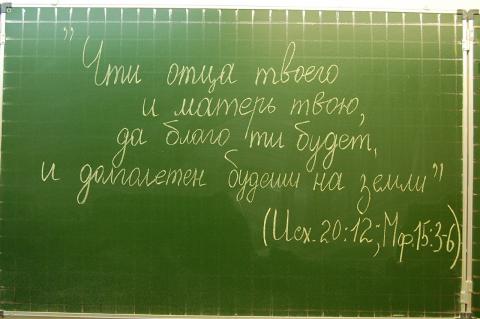 "Чти отца твоего
и матерь твою,
да благо ти будет,
и долголетен будеши на земли"
(Исх. 20:12; Мф.15:3-6)